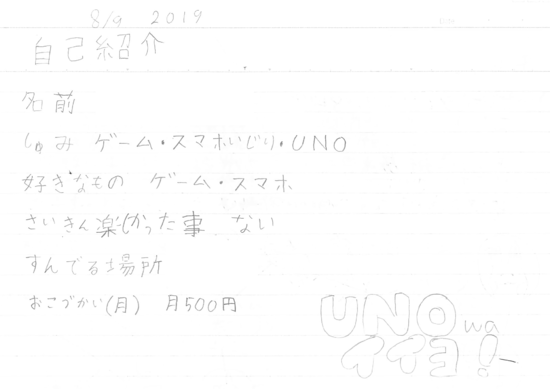 8/9 2019
自己紹介
名前
しゅみ ゲーム・スマホいじり・UNO
好きなもの ゲーム・スマホ
さいきん楽しかった事 ない
すんでる場所
おこづかい(月) 月500円
UNO wa
イイヨ!